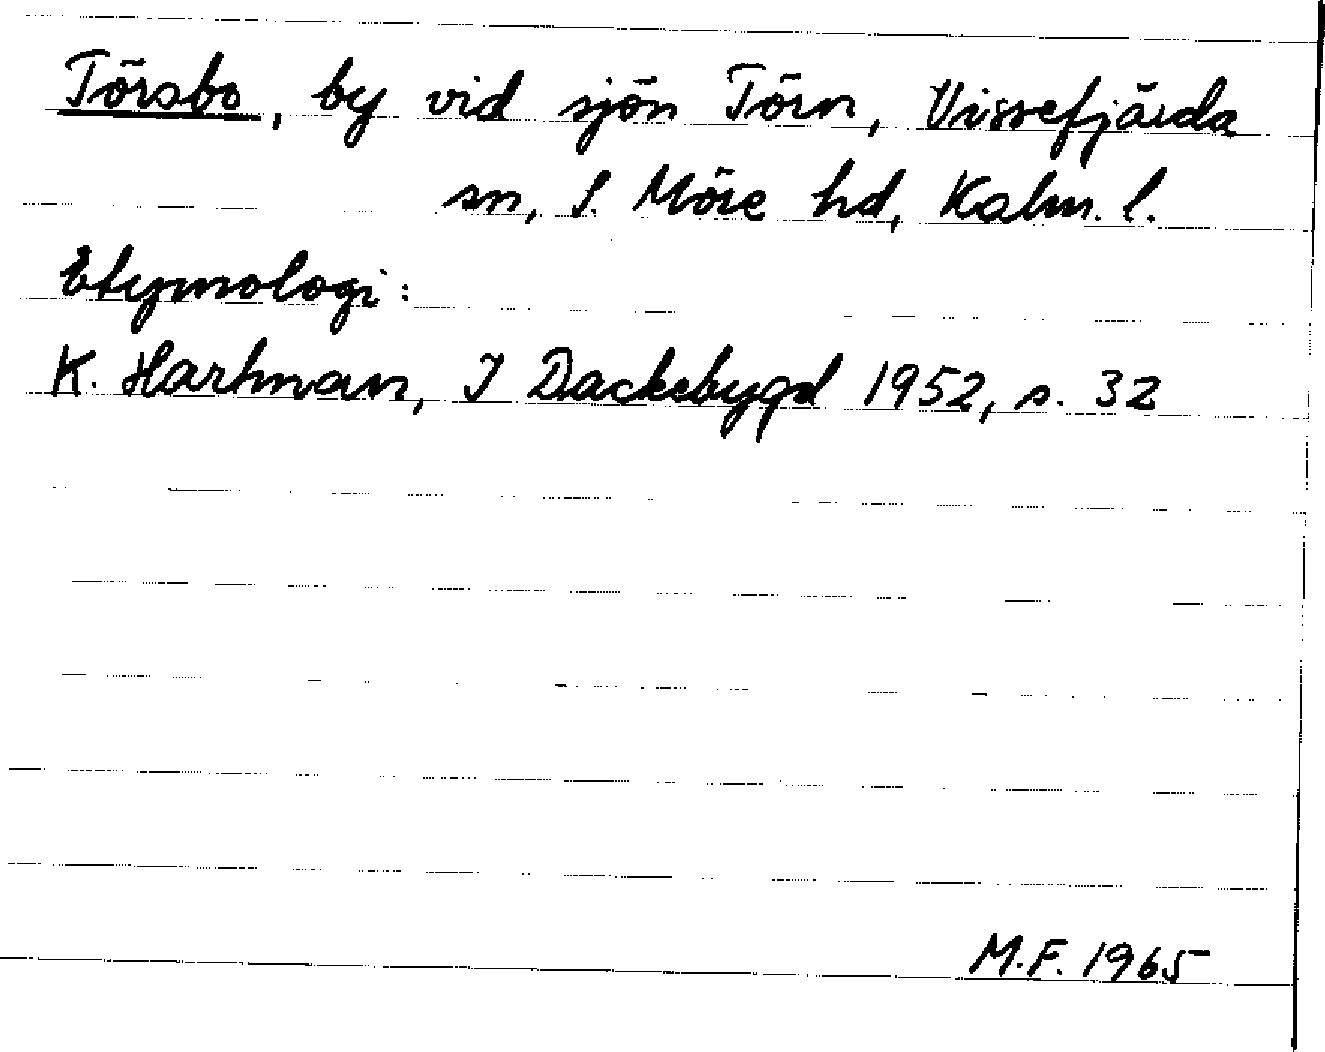 Törsbo, by vid sjön Törn, Vissefjärda
sn, S. Möre hd, Kalm. l.
Etymologi:
K. Hartman, I Dackebygd 1952, s. 32
M.F. 1965